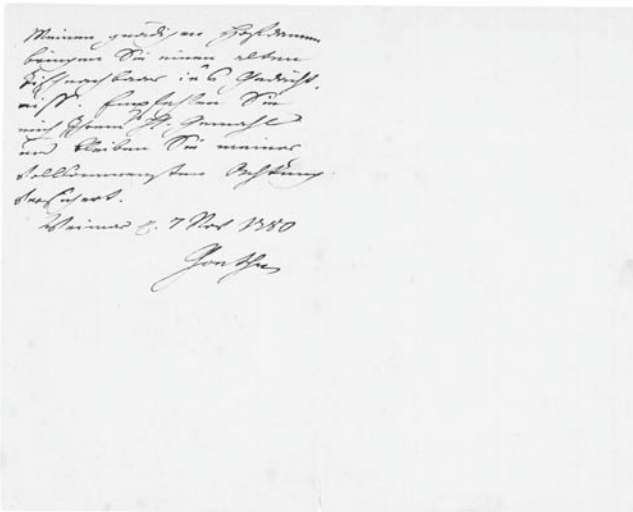 Meinen gnädigen Hofdamen
bringen Sie einen alten
Tischnachbaar in's Gedächt-
niss. Empfehlen Sie
mich Ihrem H. Gemahl
und bleiben Sie meiner
vollkommensten Achtung
versichert.
Weimar d. 7 Nov 1780
Goethe